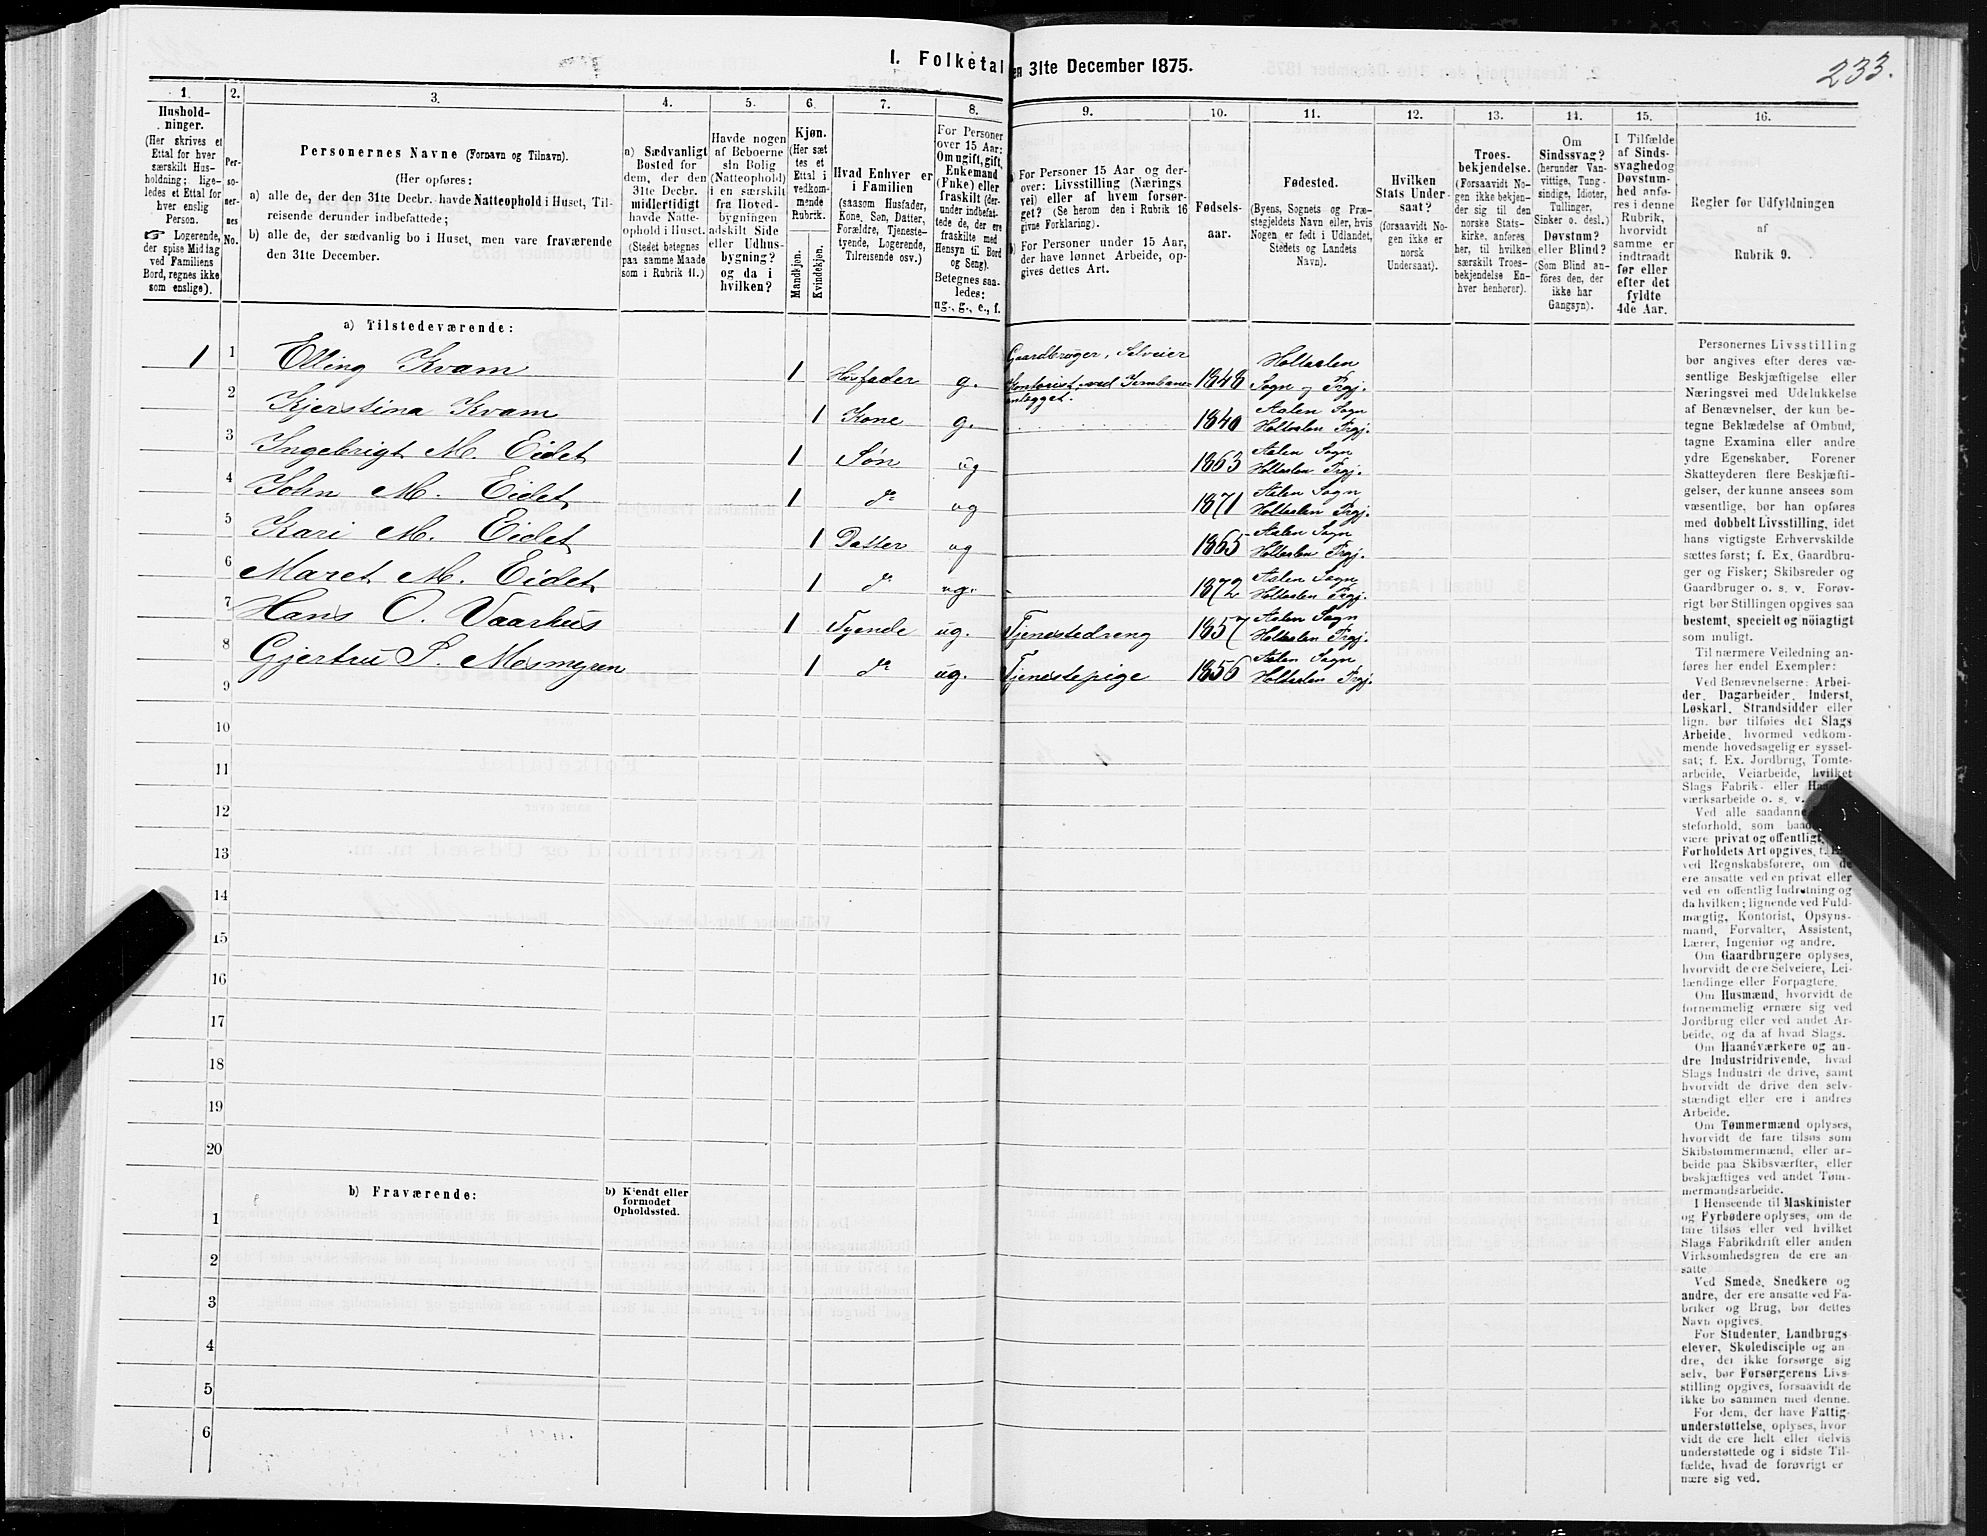 233.
I. Folketal den 31te December 1875.
1. 2. 3. 4. 5. 6. 7. 8. 9. 10. 11. 12. 13. 14. 15. 16.
Hushold-
ninger.
(Her skrives et
Ettal for hver
særskilt Hus-
holdning; lige-
ledes et Ettal for
hver enslig
Person.
☞ Logerende,
der spise Middag
ved Familiens
Bord, regnes ikke
som enslige).
Per-
so-
ner-
nes
No.
Personernes Navne (Fornavn og Tilnavn).
(Her opføres:
a) alle de, der den 31te Decbr. havde Natteophold i Huset, Til-
reisende derunder indbefattede;
b) alle de, der sædvanlig bo i Huset, men vare fraværende
den 31te December.
a) Sædvanligt
Bosted for
dem, der den
31te Decbr.
midlertidigt
havde Natte-
ophold i Huset.
(Stedet betegnes
paa samme Maade
som i Rubrik 11.)
Havde nogen
af Beboerne
sin Bolig
(Natteophold)
i en særskilt
fra Hoved-
bygningen
adskilt Side
eller Udhus-
bygning?
og da i
hvilken?
Kjøn.
(Her sæt-
tes et
Ettal i
vedkom-
mende
Rubrik.
Mandkjøn.
Kvindekjøn.
Hvad Enhver er
i Familien
(saasom Husfader,
Kone, Søn, Datter,
Forældre, Tjeneste-
tyende, Logerende,
Tilreisende osv.)
For Personer
over 15 Aar:
Om ugift, gift,
Enkemand
(Enke) eller
fraskilt (der-
under indbefat-
tede de, der ere
fraskilte med
Hensyn til Bord
og Seng).
Betegnes saa-
ledes:
ug., g., e., f.
a) For Personer 15 Aar og der-
over: Livsstilling (Nærings-
vei) eller af hvem forsør-
get? (Se herom den i Rubrik 16
givne Forklaring).
b) For Personer under 15 Aar,
der have lønnet Arbeide, op-
gives dettes Art.
Fødsels-
aar.
Fødested.
(Byens, Sognets og Præ-
stegjeldets Navn eller, hvis
Nogen er født i Udlandet,
Stedets og Landets
Navn).
Hvilken
Stats Under-
saat?
(forsaavidt No-
gen ikke er
norsk
Undersaat).
Troes-
bekjendelse.
(Forsaavidt No-
gen ikke bekjen-
der sig til den
norske Stats-
kirke, anføres
her, til hvilken
særskilt Troes-
bekjendelse En-
hver henhører).
Om
Sindssvag?
(herunder Van-
vittige, Tung-
sindige, Idioter,
Tullinger,
Sinker o. desl.)
Døvstum?
eller Blind?
(Som Blind an-
føres den, der
ikke har
Gangsyn).
I Tilfælde
af Sinds-
svaghed og
Døvstum-
hed anfø-
res i denne
Rubrik,
hvorvidt
samme er
indtraadt
før eller
efter det
fyldte
4de Aar.
Regler for Udfyldningen
af
Rubrik 9.
a) Tilstedeværende:
1 1 Elling Kvam 1 Husfader g. Gaardbruger, Selveier Kontorist ved Jernbane- anlegget. 1848 Holtaalen Sogn og Prgj.
2 Kjerstina Kvam 1 Kone g. 1840 Aalen Sogn Holtaalen Prgj.
3 Ingebrigt M. Eidet 1 Søn ug 1863 Aalen Sogn Holtaalen Prgj.
4 John M. Eidet 1 do ug 1871 Aalen Sogn Holtaalen Prgj.
5 Kari M. Eidet 1 Datter ug 1865 Aalen Sogn Holtaalen Prgj.
6 Maret M. Eidet 1 do ug. 1872 Aalen Sogn Holtaalen Prgj.
7 Hans O. Vaarhus 1 Tyende ug. Tjenestedreng 1857 Aalen Sogn Holtaalen Prgj.
8 Gjertru S. Mosmyren 1 do ug. Tjenestepige 1856 Aalen Sogn Holtaalen Prgj.
9
10
11
12
13
14
15
16
17
18
19
20
b) Fraværende:
b) Kjendt eller
formodet
Opholdssted.
1
2
3
4
5
6
Personernes Livsstilling
bør angives efter deres væ-
sentlige Beskjæftigelse eller
Næringsvei med Udelukkelse
af Benævnelser, der kun be-
tegne Beklædelse af Ombud,
tagne Examina eller andre
ydre Egenskaber. Forener
Skatteyderen flere Beskjæfti-
gelser, der kunne ansees som
væsentlige, bør han opføres
med dobbelt Livsstilling, idet
hans vigtigste Erhvervskilde
sættes først; f. Ex. Gaardbru-
ger og Fisker; Skibsreder og
Gaardbruger o. s. v. Forøv-
rigt bør Stillingen opgives saa
bestemt, specielt og nøiagtigt
som muligt.
Til nærmere Veiledning an-
føres her endel Exempler:
Ved Benævnelserne: Arbei-
der, Dagarbeider, Inderst,
Løskarl, Strandsidder eller
lign. bør tilføies det Slags
Arbeide, hvormed vedkom-
mende hovedsagelig er syssel-
sat; f. Ex. Jordbrug, Tomte-
arbeide, Veiarbeide, hvilket
Slags Fabrik- eller
værksarbeide o. s. v.
Ved alle saadanne
steforhold, som
være privat og offentligt,
Forholdets Art opgives,
ved Regnskabsførere, om de
ere ansatte ved en privat eller
ved en offentlig Indretning og
da hvilken; lignende ved Fuld-
mægtig, Kontorist, Opsyns-
mand, Forvalter, Assistent,
Lærer, Ingeniør og andre.
Om Gaardbrugere oplyses,
hvorvidt de ere Selveiere, Lei-
lændinge eller Forpagtere.
Om Husmænd, hvorvidt de
fornemmelig ernære sig ved
Jordbrug eller ved andet Ar-
beide, og da af hvad Slags.
Om Haandværkere og an-
dre Industridrivende, hvad
Slags Industri de drive, samt
hvorvidt de drive den selv-
stændigt eller ere i andres
Arbeide.
Om Tømmermænd oplyses,
hvorvidt de fare tilsøs som
Skibstømmermænd, eller ar-
beide paa Skibsværfter, eller
beskjæftiges ved andet Tøm-
mermandsarbeide.
I Henseende til Maskinister
og Fyrbødere oplyses, om de
fare tilsøs eller ved hvilket
Slags Fabrikdrift eller anden
Virksomhedsgren de ere an-
satte.
Ved Smede, Snedkere og
andre, der ere ansatte ved Fa-
briker og Brug, bør dettes
Navn opgives.
For Studenter, Landbrugs-
elever, Skoledisciple og an-
dre, der ikke forsørge sig
selv, bør Forsørgerens Livs-
stilling opgives, forsaavidt de
ikke bo sammen med denne.
For dem, der have Fattig-
understøttelse, oplyses, hvor-
vidt de ere helt eller delvis
understøttede og i sidste Til-
fælde, hvad de forøvrigt er-
nære sig ved.